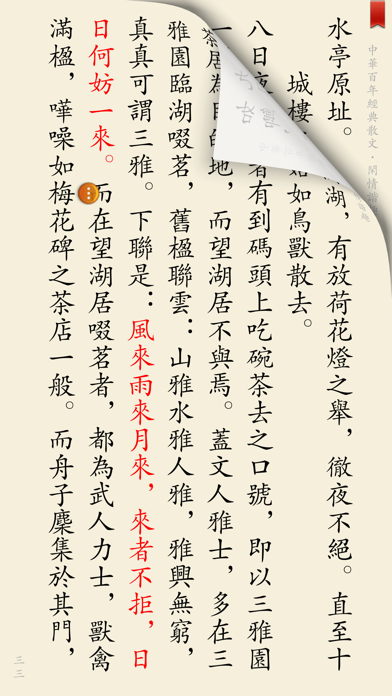 中華百年經典散文·閑情
水亭原址。湖，有放荷花燈之舉，徹夜不絕。直至十
城樓如鳥獸散去。
八日夜者有到碼頭上吃碗茶去之口號，即以三雅園
一茶居為目的地，而望湖居不與焉。蓋文人雅士，多在三
雅園臨湖啜茗，舊楹聯雲：山雅水雅人雅，雅興無窮，
真真可謂三雅。下聯是：風來雨來月來，來者不拒，日
日何妨一來。而在望湖居啜茗者，都為武人力士，獸禽
滿楹，嘩噪如梅花碑之茶店一般。而舟子麇集於其門，
三三